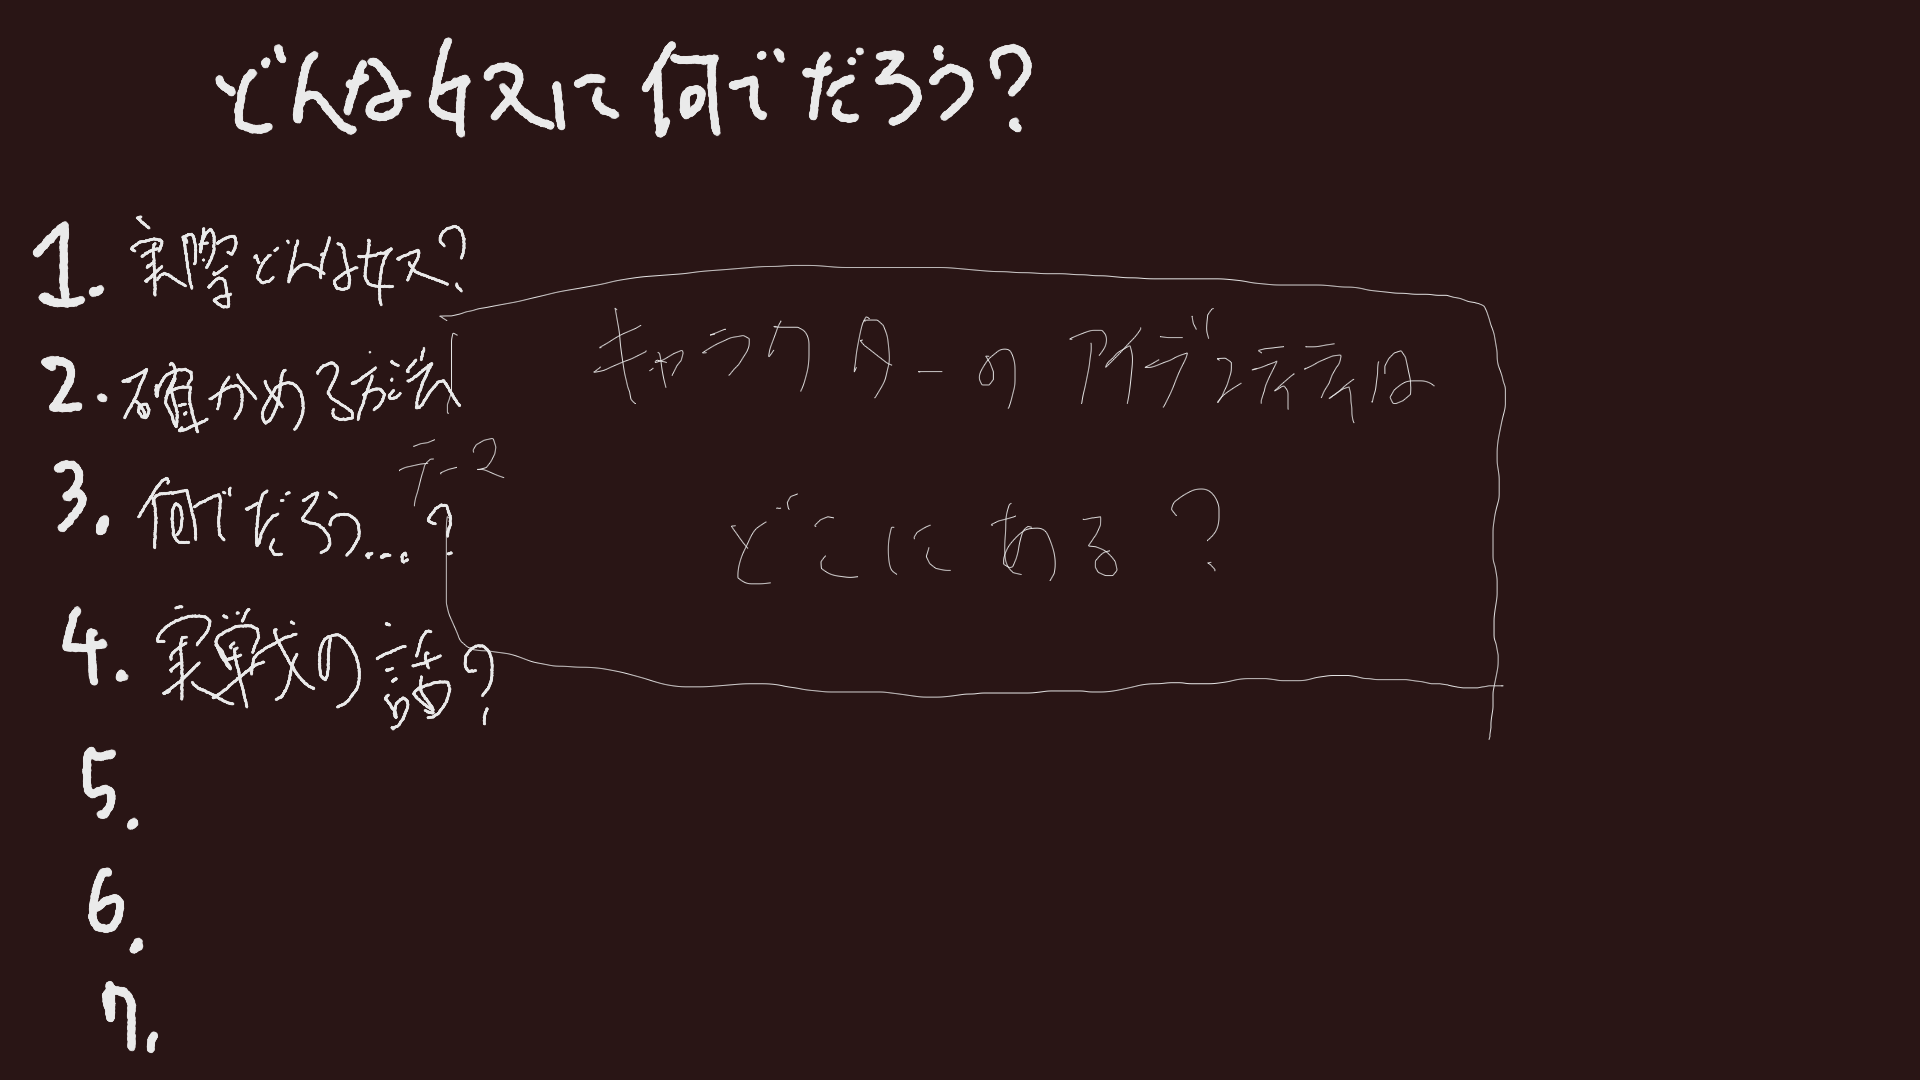 どんな奴に何でだろう?
1. 実際どんな奴?
2. 確かめる方法
3. 何でだろう...?
4. 実戦の話?
5.
6.
7.
テーマ
キャラクターのアイデンティティは
どこにある?